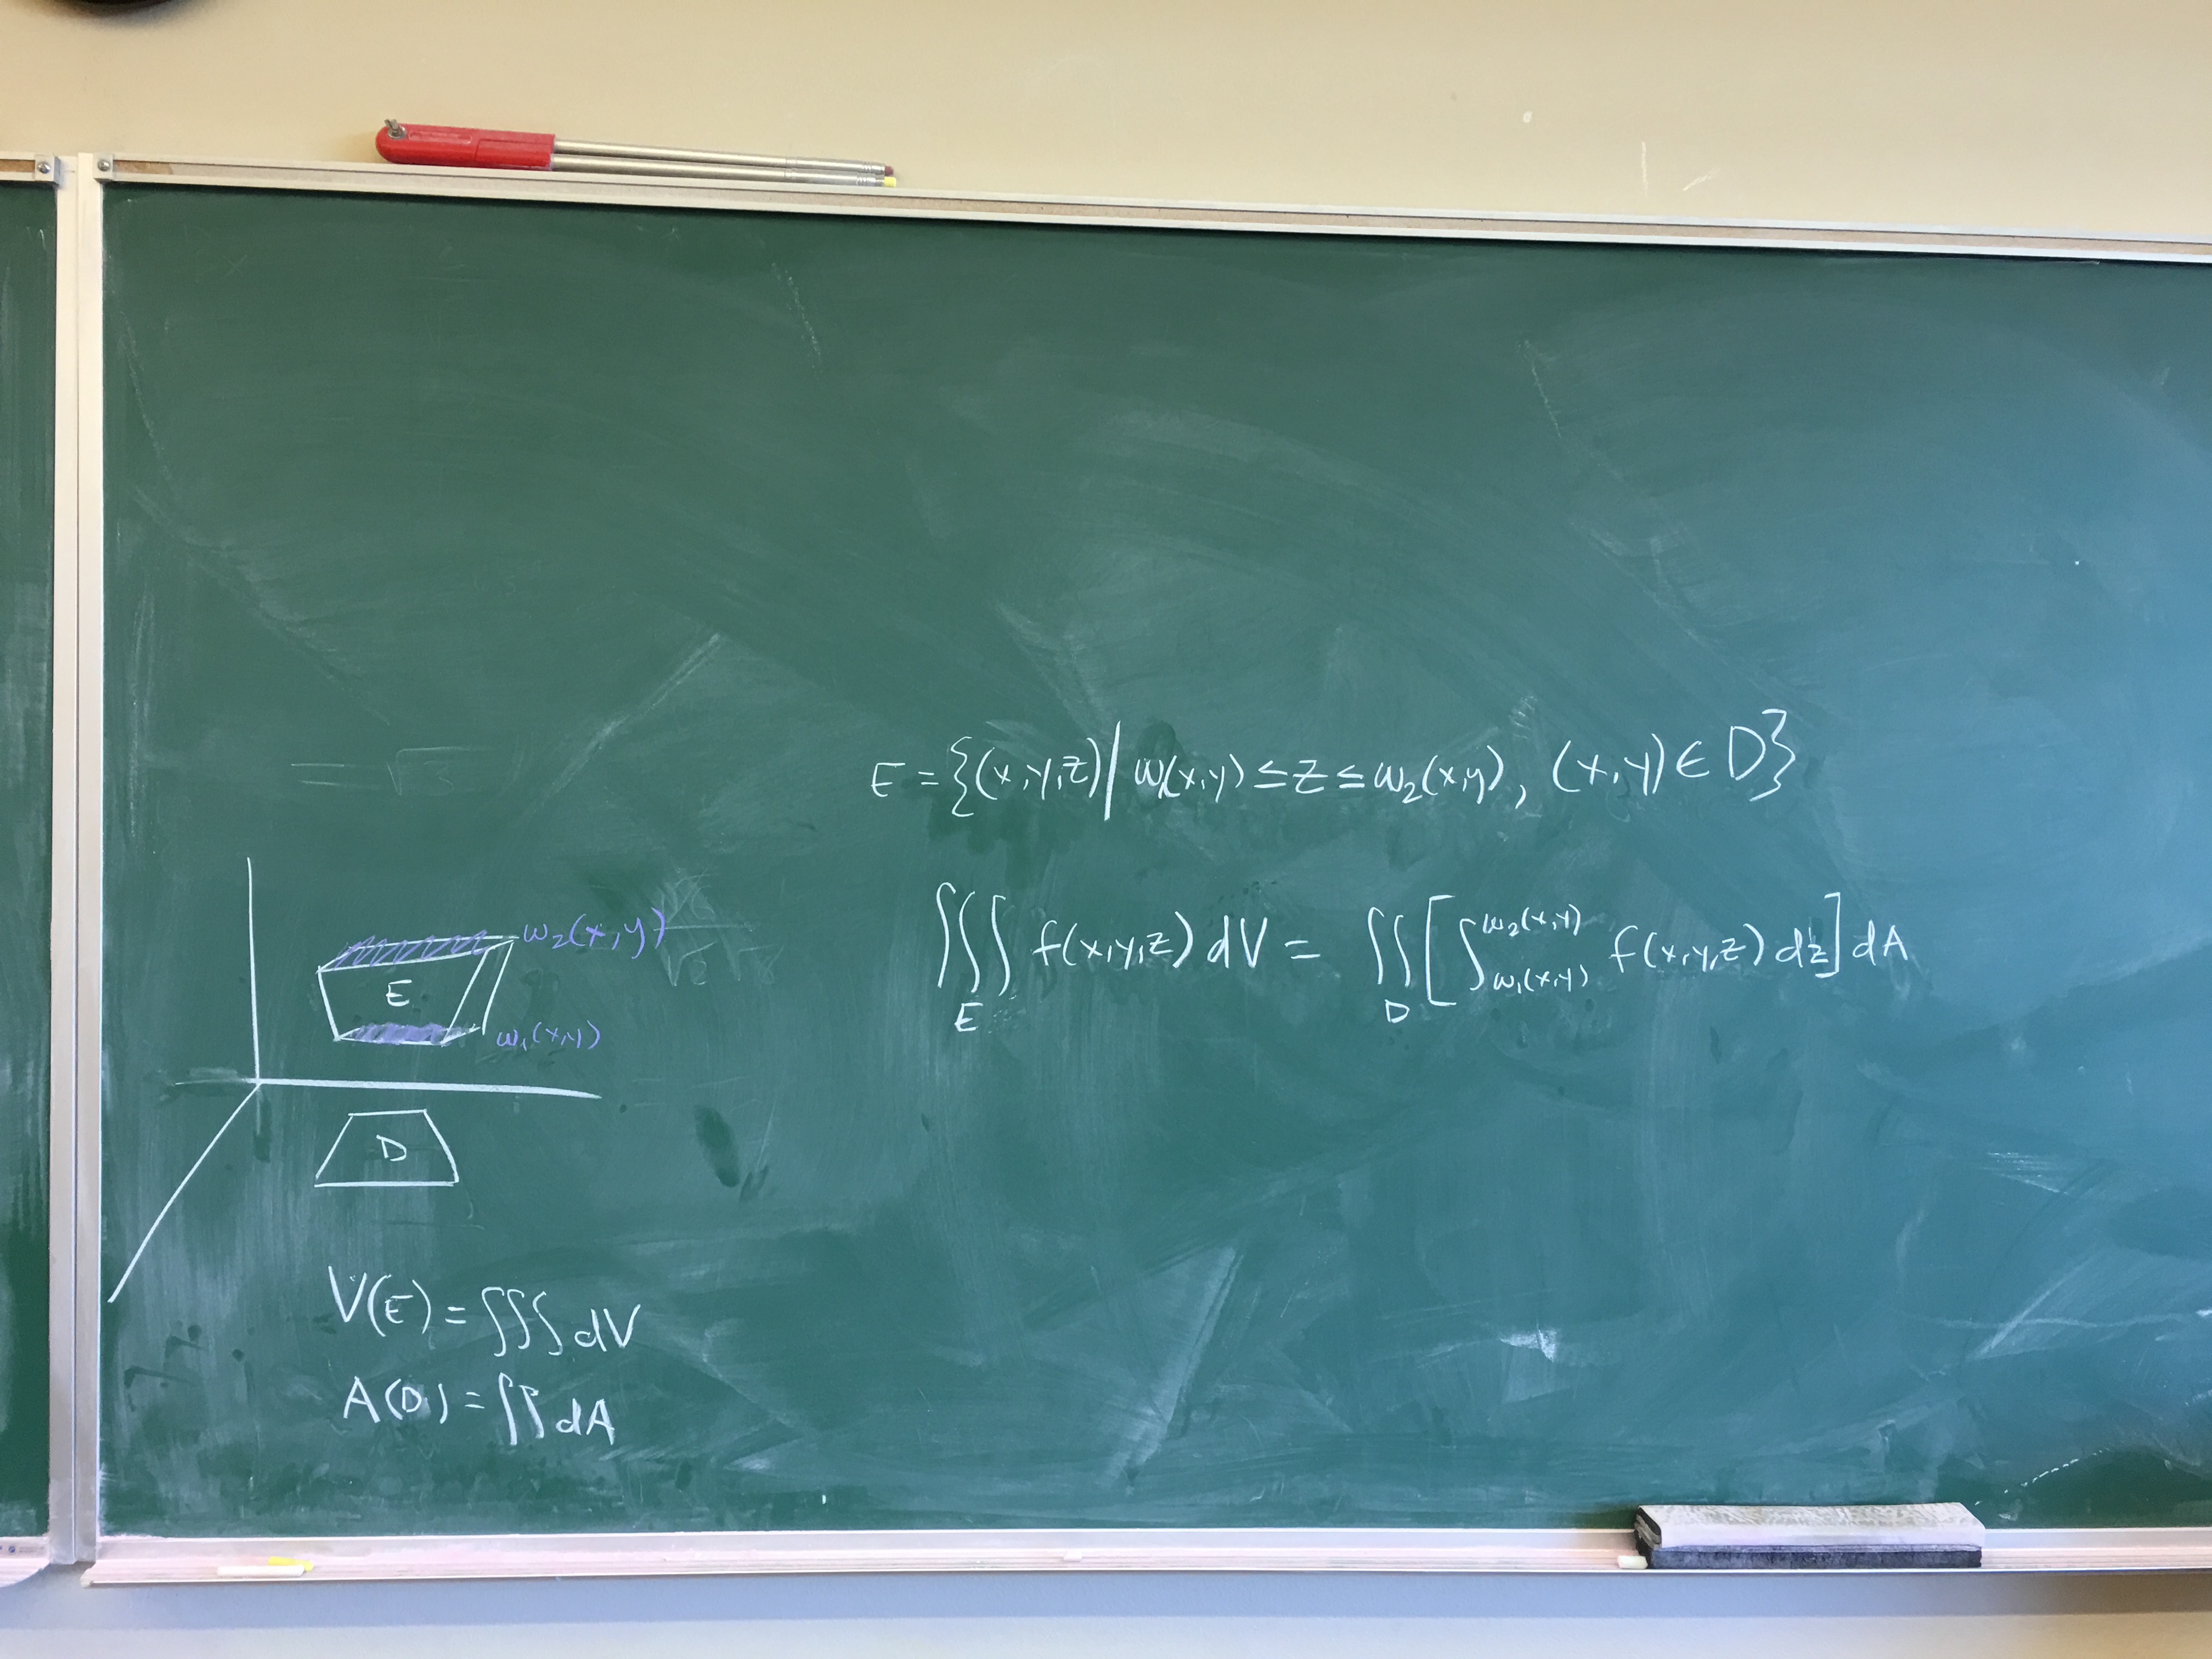 E = {(x,y,z) | w₁(x,y) ≤ z ≤ w₂(x,y), (x,y) ∈ D}
∭_E f(x,y,z) dV = ∬_D [∫_{w₁(x,y)}^{w₂(x,y)} f(x,y,z) dz] dA
w₂(x,y)
E
w₁(x,y)
D
V(E) = ∭ dV
A(D) = ∬ dA